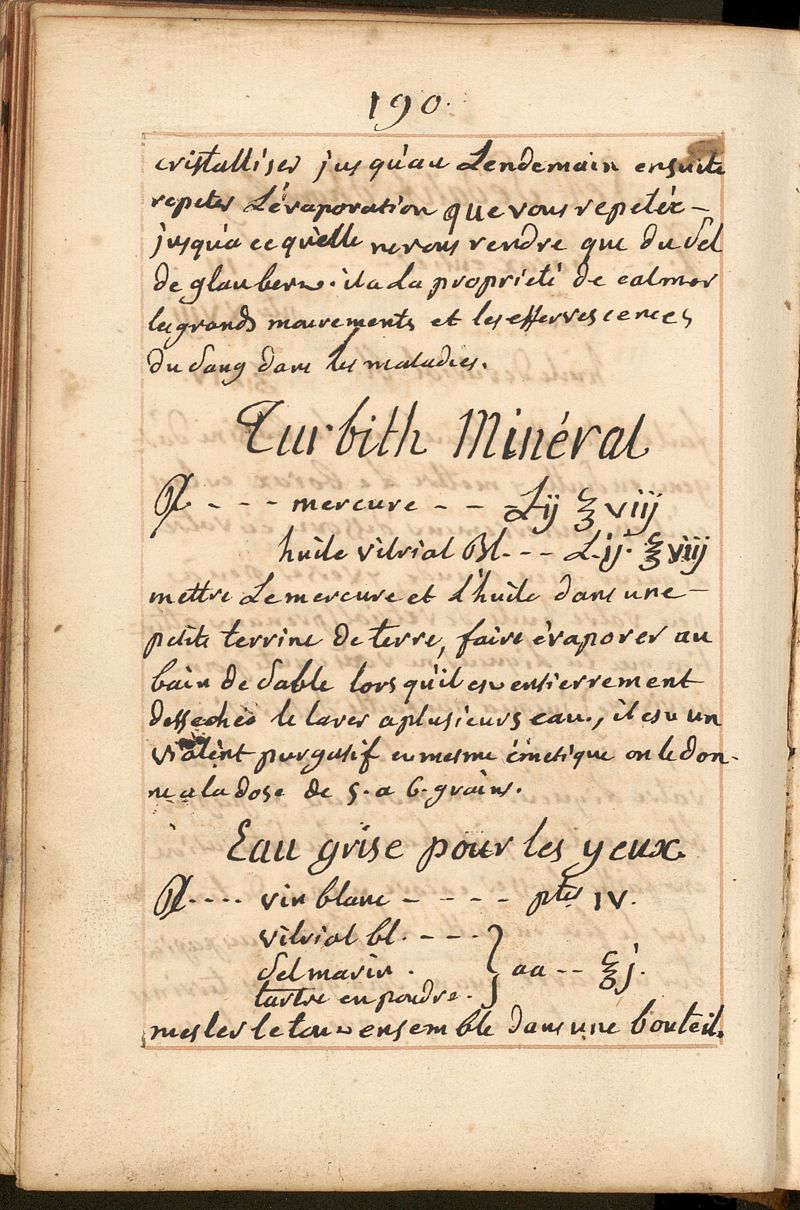 190.
cristalliser jusqu'au Lendemain ensuite
repeter L'évaporation que vous repetéz –
jusqu'a ce qu'elle ne vous rendre que du Sel
de glauber. il a La proprieté de calmer
les grands mouvements et les effervescences
du Sang dans les maladies.
Turbith Minéral
℞ - - - mercure - - L ij ℥ viij
huile vitriol Bl. - - - L. ij. ℥ viij
mettre Le mercure et L'huile dans une –
petite terrine de terre, faire évaporer au
bain de Sable lors qu'il est entierrement
dessechée le laver a plusieurs eau, il est un
violent purgatif et mesme émetique on le don-
ne a la dose de 5. a 6. grains.
Eau grise pour les yeux.
℞. . . . vin blanc - - - - ptes IV.
vitriol bl. - - -
Sel marin . } aa - - ℥ j.
tartre en poudre.
mesler le tout ensemble dans une bouteil.